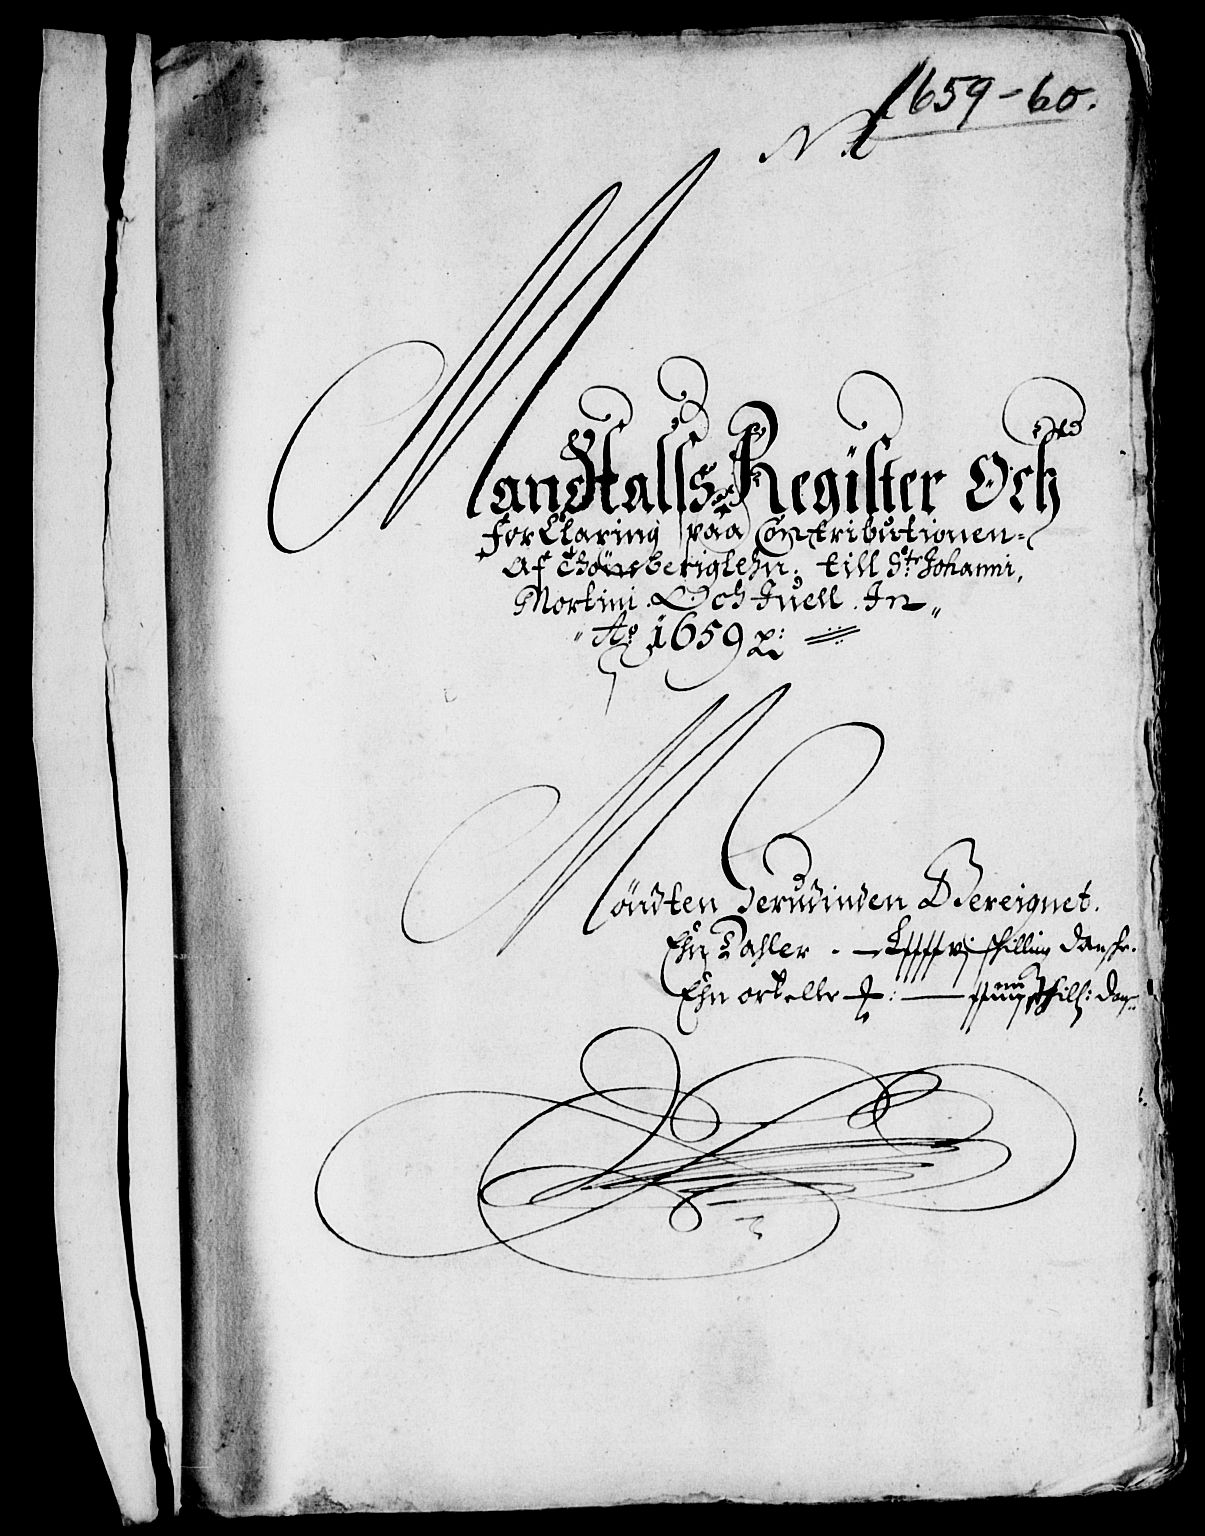 1659-60.
N 1
Mandtalss Register Och
forClaring paa Contributionen
Af Tönsberiglehn, till St: Johanni,
Mortini. Och Juell. In
Ao 1659 p:
Möndten Herudinden Bereignet.
Ehn Dahler schilling Dansche.
Ehn ort eller schill: Dans